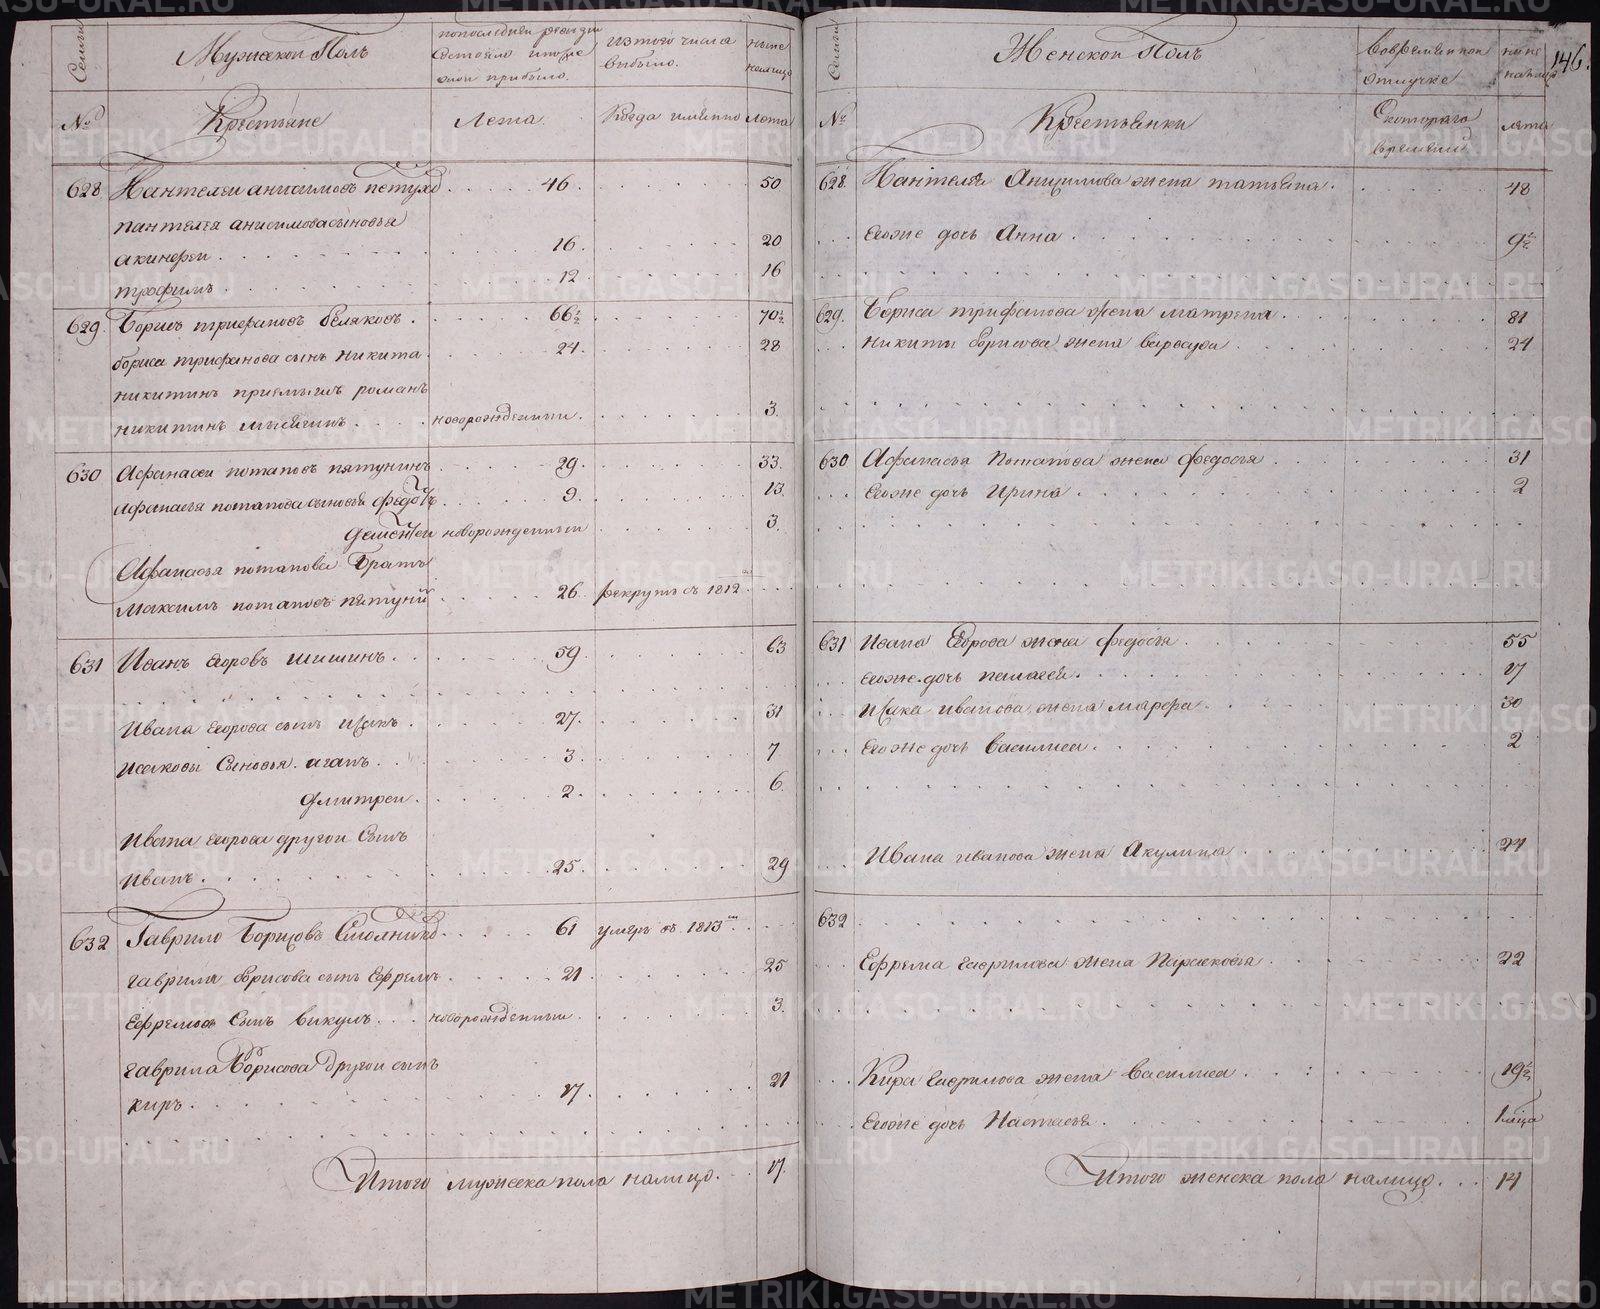 Семьи
Мужескои Полъ
попоследнеи ревизии
состояло ипосле
онои прибыло.
изтого числа
выбыло.
ныне
налицо
№
Крестьяне
Лета
Когда имянно
лета
628 Пантелеи анисимовъ петухо 46 50
пантелея анисимова сыновья
акинфеи 16 20
трофимъ 12 16
629 Борисъ трифановъ беляковъ 66½ 70½
бориса трифанова сынъ никита 24 28
никитинъ приемышъ романъ
никитинъ новорожденныи 3
630 Афанасеи потаповъ пятунинъ 29 33
Афанасья потапова сыновья федотъ 9 13
дементеи новорожденныи 3
Афанасья потапова Братъ
Максимъ потаповъ пятунин 26 рекрутъ въ 1812м
631 Иванъ егоровъ шишинъ 59 63
Ивана егорова сынъ исакъ 27 31
Исаковы Сыновья агапъ 3 7
дмитреи 2 6
Ивана егорова другои Сынъ
Иванъ 25 29
632 Гаврило Борисовъ Смолнико 61 умеръ въ 1813м
гаврилы борисова сынъ Ефремъ 21 25
Ефремовъ Сынъ викулъ новорожденныи 3
гаврила Борисова другои сынъ
киръ 17 21
Итого мужеска пола налицо 17
146.
Семьи
Женскои Полъ
Вовременнои
отлучке
ныне
налицо
№
Крестьянки
Скотораго
времени
лета
628 Пантелея Анисимова жена татьяна 48
Егоже дочь Анна 9½
629. Бориса трифанова жена матрена 81
никиты борисова жена варвара 24
630 Афанасья Потапова жена федосья 31
Егоже дочь Ирина 2
631 Ивана Егорова жена федосья 55
Егоже дочь пелагея 17
Исака иванова жена марфа 30
Егоже дочь василиса 2
Ивана иванова жена Акулина 24
632
Ефрема гаврилова жена Парасковья 22
Кира гаврилова жена василиса 19½
Егоже дочь Настасья 1 меца
Итого женска пола налицо 14
METRIKI.GASO-URAL.RU